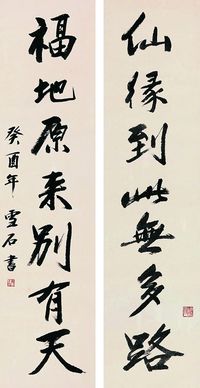 仙缘到此無多路
福地原来别有天
癸酉年 雪石書